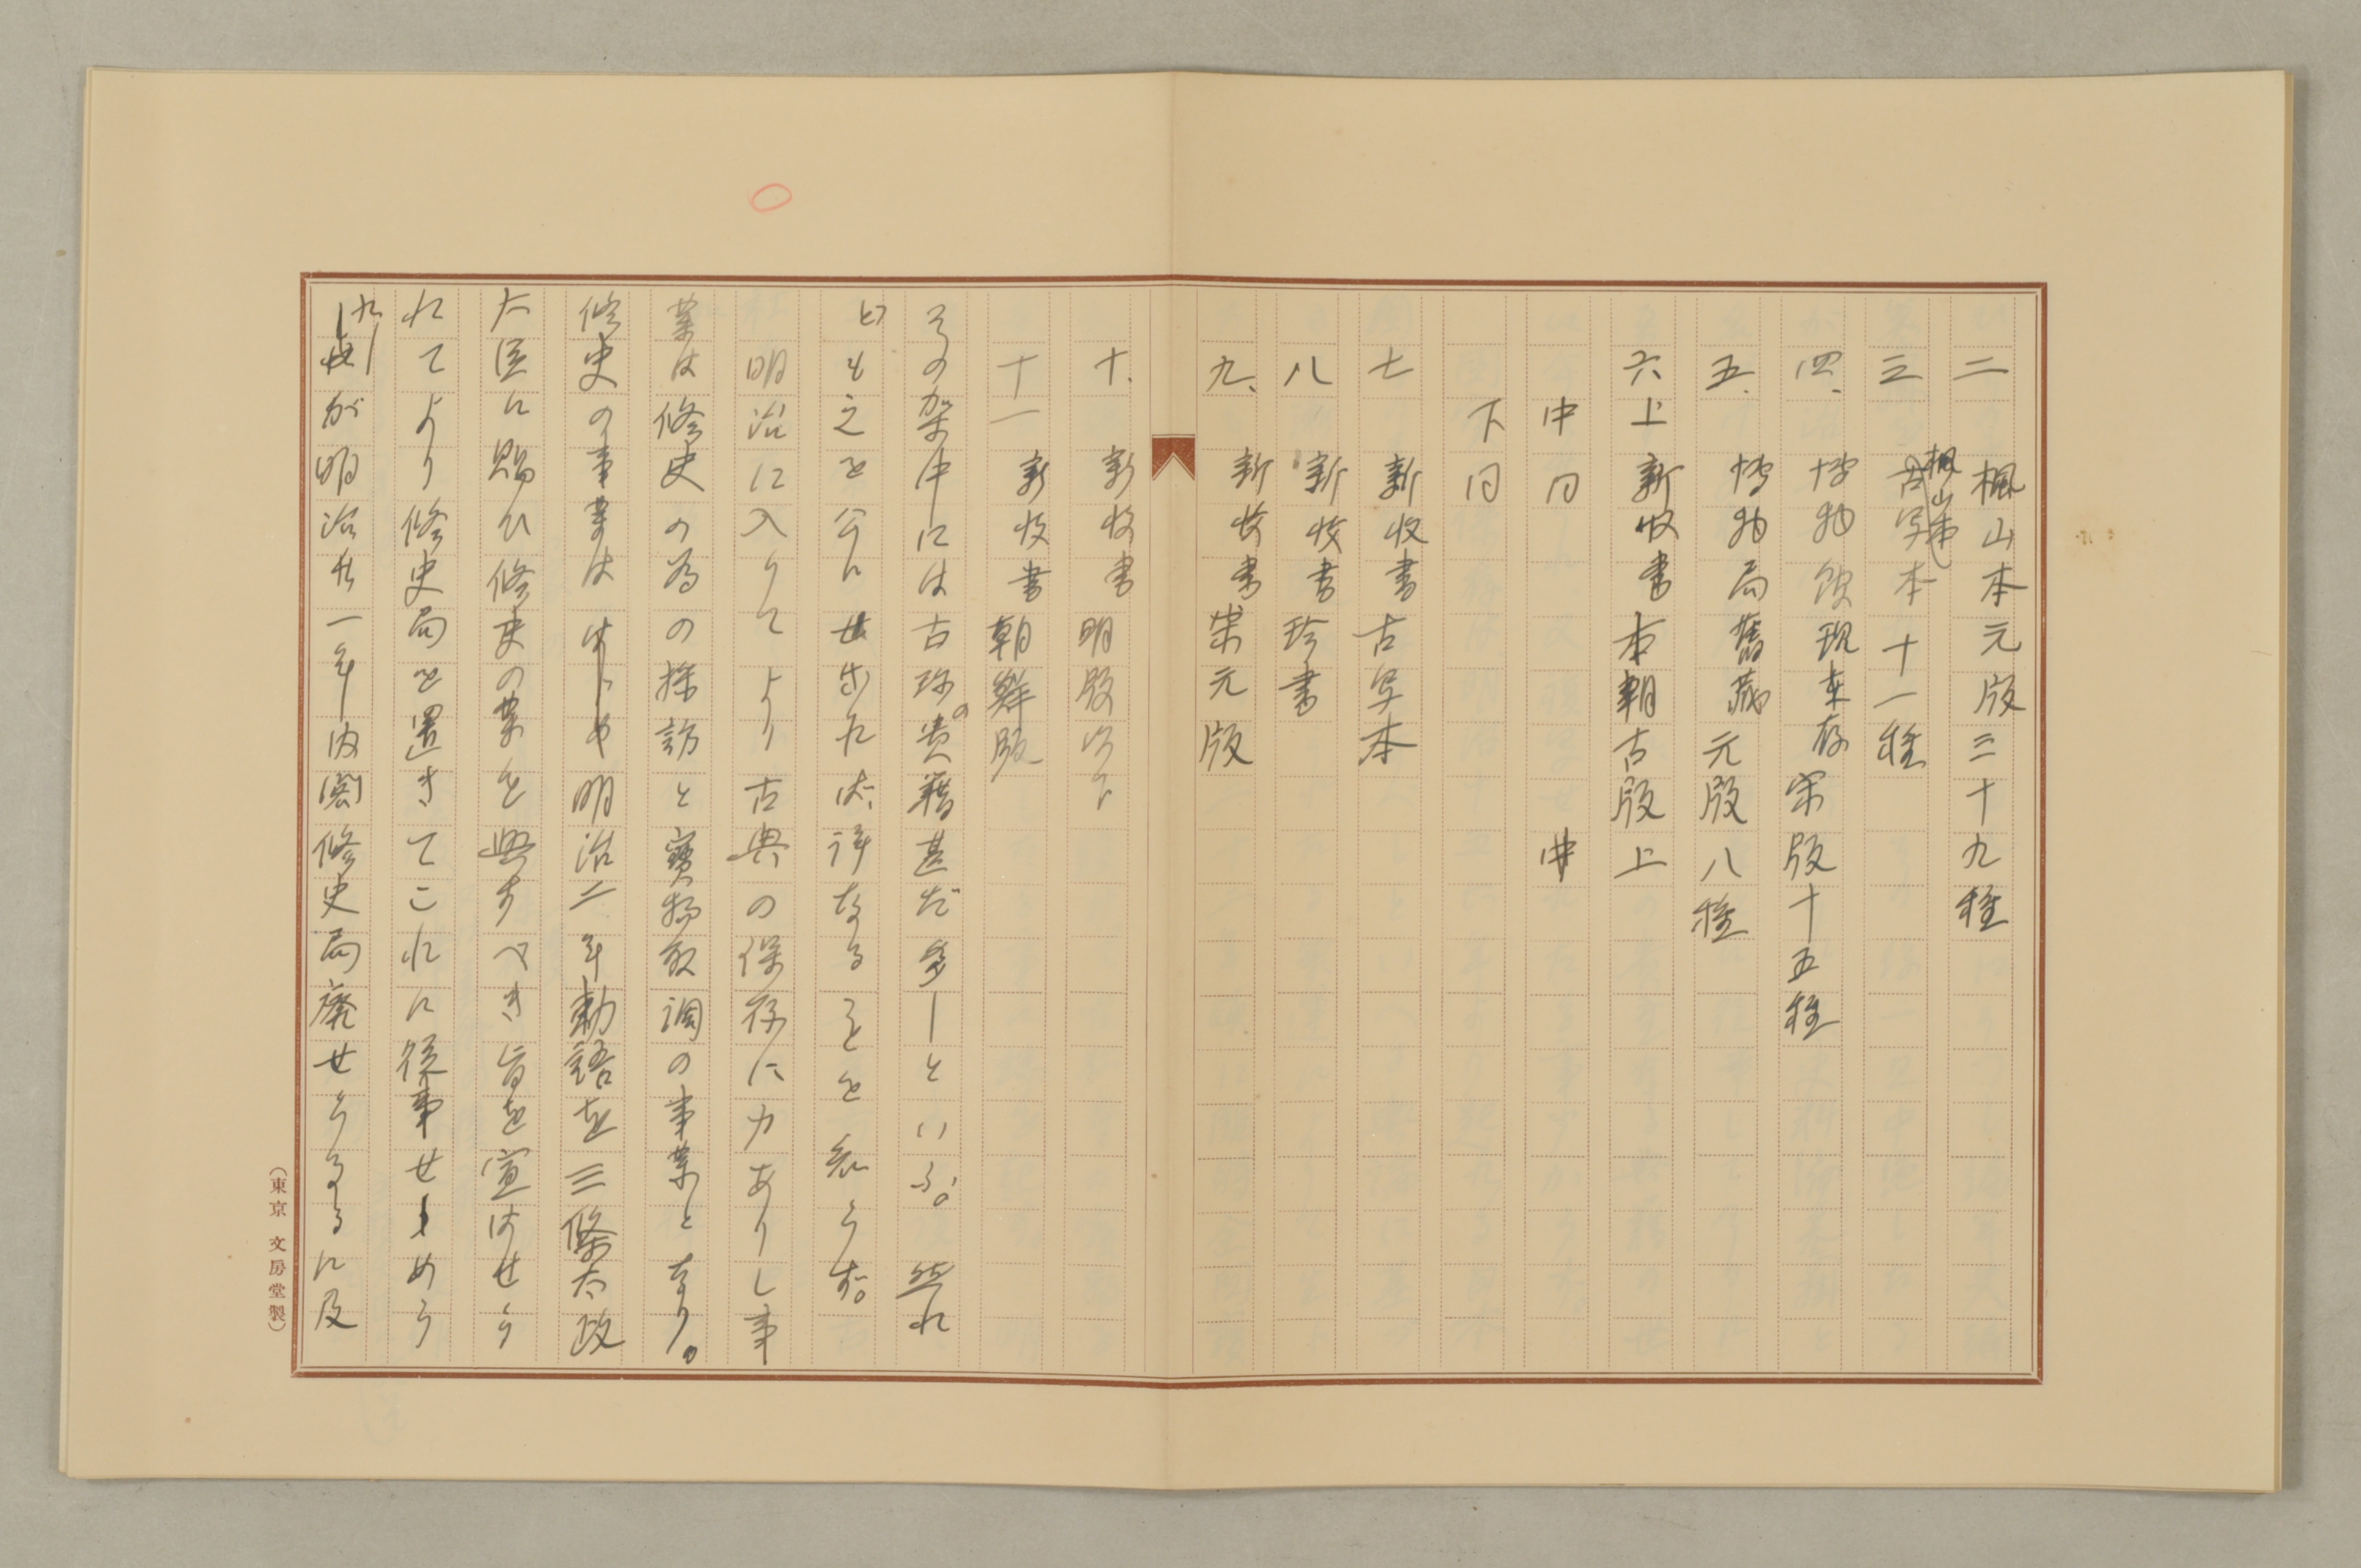 二　楓山本元版三十九種
三　楓山本古写本十一種
四、博物館現在存宋版十五種
五、博物局舊蔵元版八種
六上　新收書本朝古版上
中　同　中
下　同
七　新收書古写本
八　新收書珍書
九、新收書宋元版
十、新收書明版以下
十一　新收書朝鮮版
その架中には古珍の貴籍甚だ多しといふ。然れ
ども之を公にせられたは詳なることを知らず。
明治に入りてより古典の保存に力ありし事
業は修史の為の採訪と寶物取調の事業となり。
修史の事業ははじめ明治二年勅語を三條太政
大臣に賜ひ修史の業を興すべき旨を宣はせら
れてより修史局を置きてこれに從事せしめら
れしが明治廿一年内閣修史局廃せらるるに及
（東京　文房堂製）